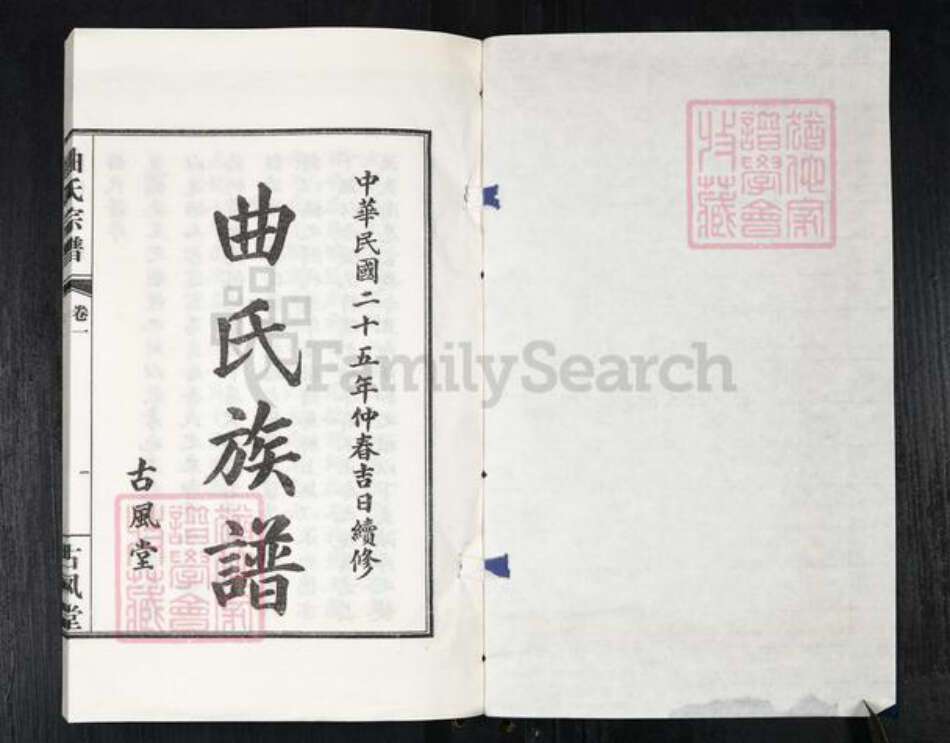 中華民國二十五年仲春吉日續修
曲氏族譜
古風堂
曲氏宗譜
卷一
一
古风堂
譜學會
收藏
FamilySearch
譜學會